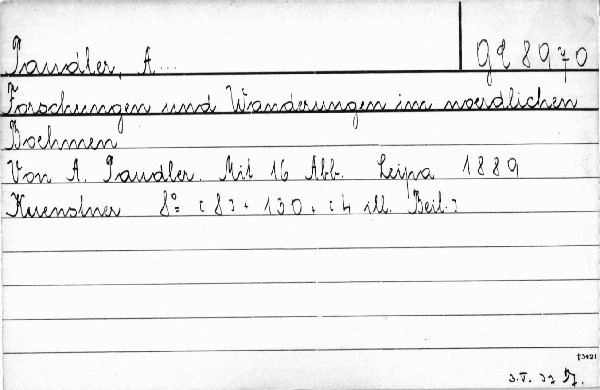 Paudler, A... 9 E 8970
Forschungen und Wanderungen im noerdlichen
Boehmen
Von A. Paudler. Mit 16 Abb. Leipa 1889
Kuenstner 8° (8) + 130 + (4 ill. Beil.)
†3421
3.V.